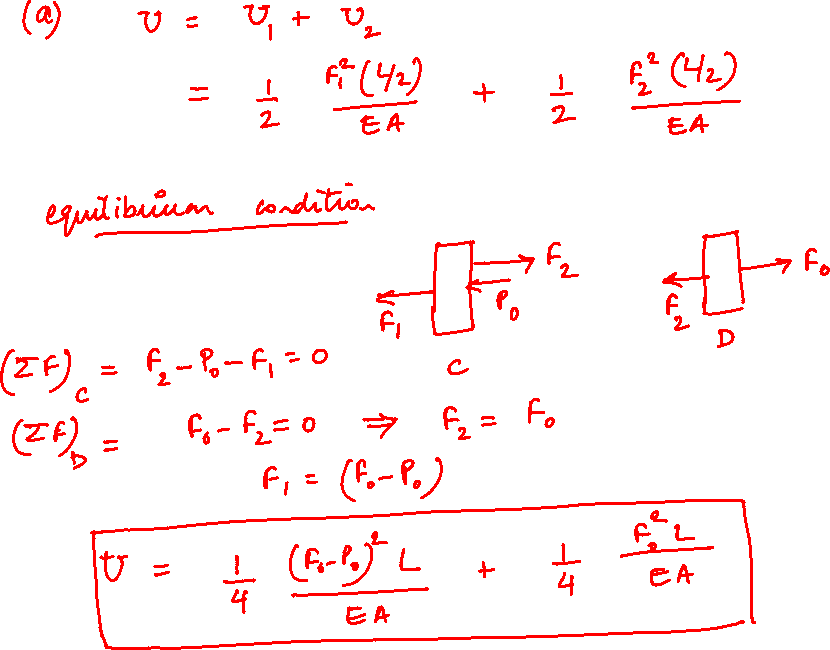 (a) U = U₁ + U₂
= 1/2 F₁²(L/2)/EA + 1/2 F₂²(L/2)/EA
equilibrium condition
F₁ F₂ P₀ C
F₂ F₀ D
(ΣF)_C = F₂ - P₀ - F₁ = 0
(ΣF)_D = F₀ - F₂ = 0 ⇒ F₂ = F₀
F₁ = (F₀ - P₀)
U = 1/4 (F₀ - P₀)² L/EA + 1/4 F₀² L/EA